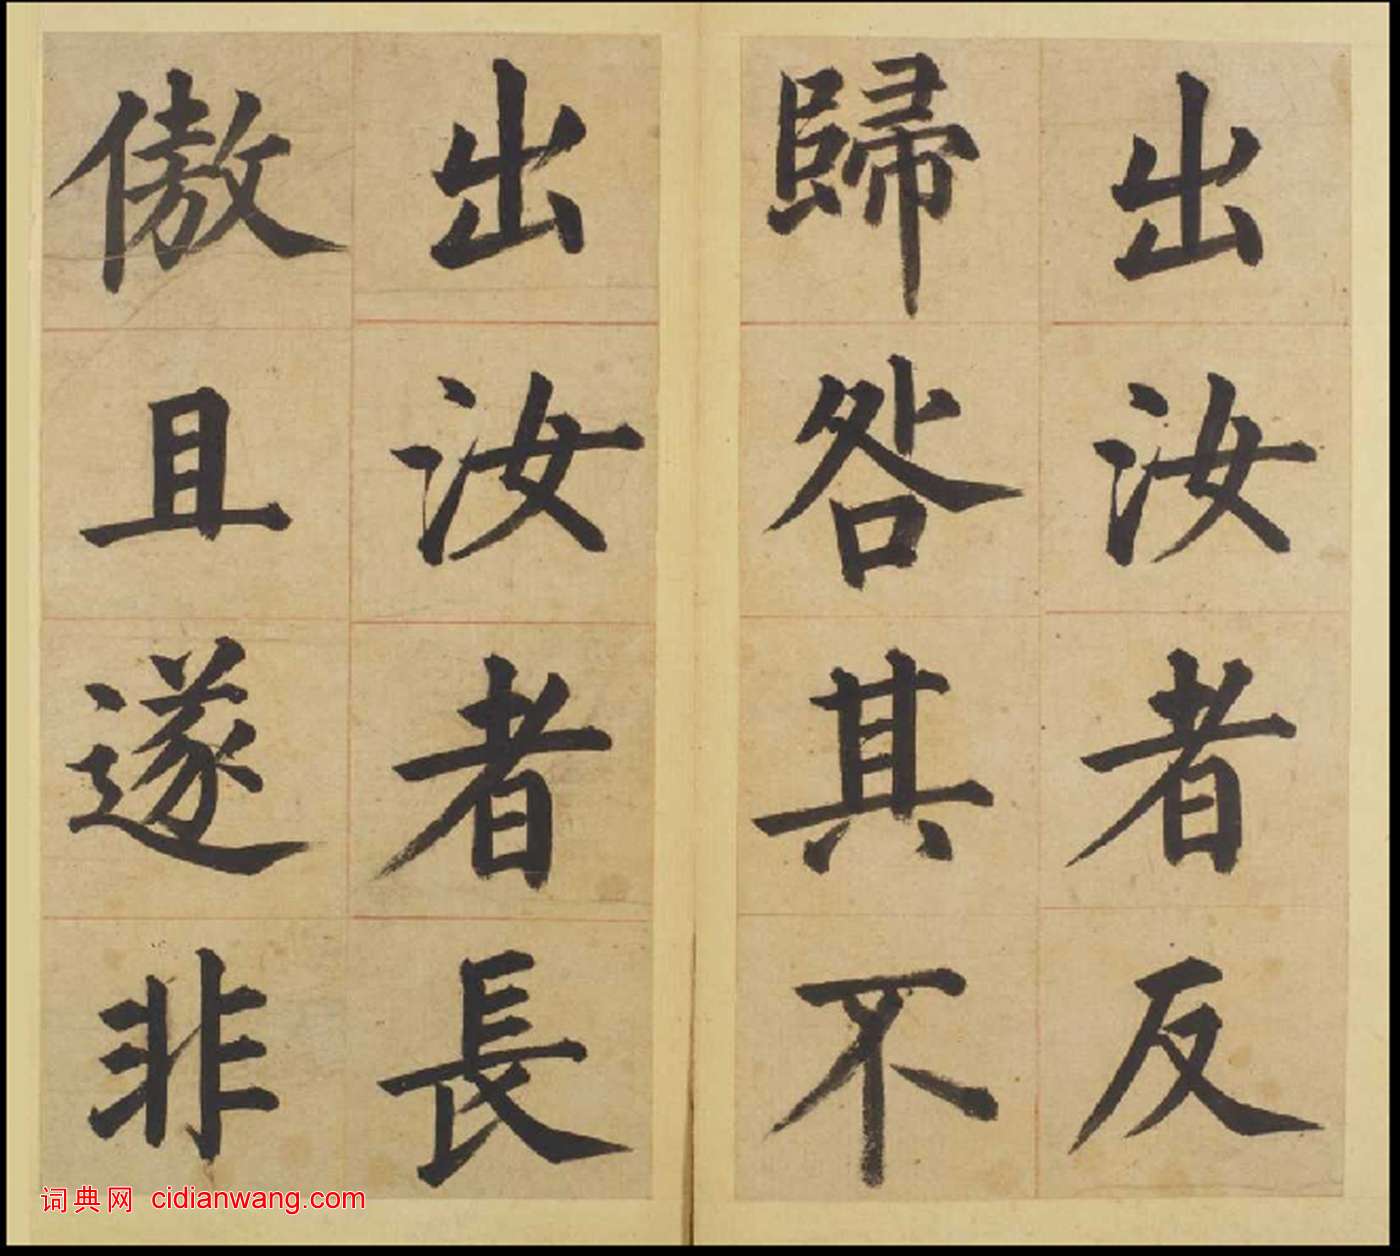 出汝者反
歸咎其不
出汝者長
傲且遂非
词典网 cidianwang.com